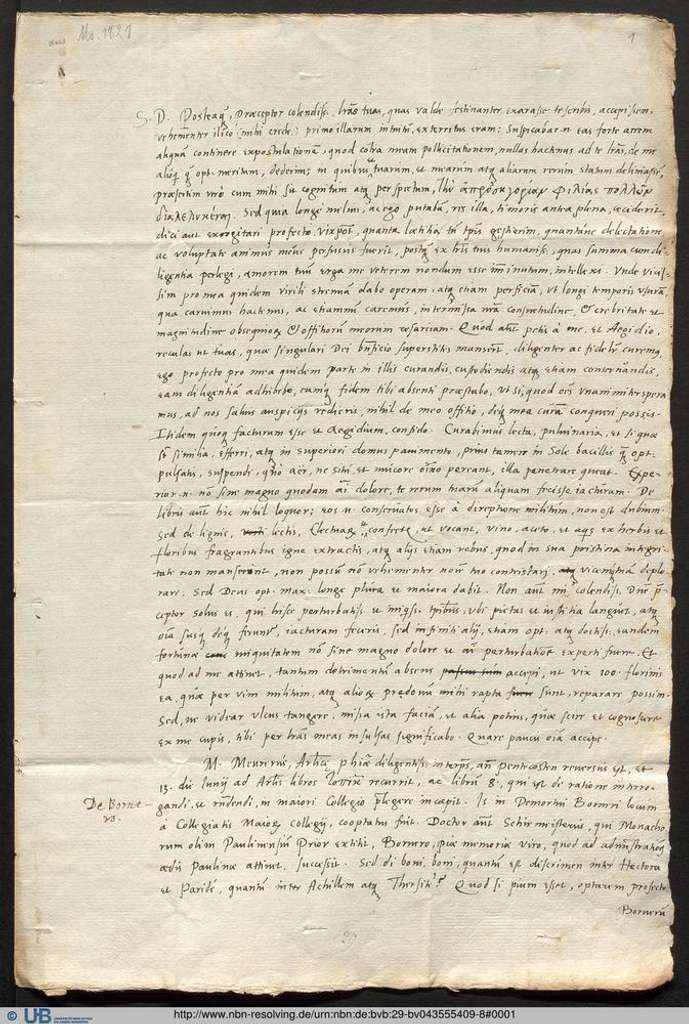 Ms. 1821
1
S. D. Posteaq̃, Præceptor colendiss. lr̃as tuas, quas valde festinanter exarasse te scribis, accepissem,
vehementer ilico (mihi crede) primo illarum intuitu exterritus eram: Suspicabar n. eas forte acrem
aliquam continere expostulationẽ, quod cõtra meam pollicitationem, nullas hactenus ad te lr̃as, de me
alioq̃ opt. meritum, dederim, in quibus tuarum et mearum atq̃ aliarum rerum statum
præsertim vero cum mihi sit cognitum atq̃ perspectum, φιλίας πολλῶν
Sed quia longe melius, ac ego putabã, res illa, timoris antea plena, ceciderit,
dici aut excogitari profecto vix põt, quanta lætitia tũ tp̃is gestierim, quantave delectatione
ac voluptate animus meus perfusus fuerit, postq̃ ex lr̃is tuis humaniss. quas summa cum di-
ligentia perlegi, amorem tuũ erga me veterem nondum esse im̃inutum, intellexi.
sim pro mea quidem virili strenuã dabo operam, atq̃ etiam perficiã, ut longi temporis usurã,
qua caruimus hactenus, ac etiamnũ caremus, intermissa nr̃a consuetudine, & crebritate et
magnitudine obsequioꝝ & officiorũ meorum resarciam. Quod aũt petis à me, et Aegidio,
reculas ut tuas, quæ singulari Dei bñficio superstites manserũt, diligenter ac fideliter curemꝰ,
ego profecto pro mea quidem parte in illis curandis, custodiendis atq̃ etiam conservandis,
eam diligentiã adhibebo, eamq̃ fidem tibi absenti præstabo, ut si, quod oẽs unanimiter spera
mus, ad nos salvis auspiciis redieris, nihil de meo officio, deq̃ mea cura conqueri possis.
Itidem quoq̃ facturum esse et Aegidium, confido. Curabimus lecta, pulvinaria, et si quæ
sũt similia, efferri, atq̃ in superiori domus pavimento, prius tamen in Sole bacillis q̃ opt.
pulsatis, suspendi, quo aer, ne situ et mucore oĩno pereant, illa penetrare queat. Expe-
rior n. nõ sine magno quodam aĩ dolore, te rerum tuarũ aliquam fecisse iacturam. De
libris aũt hic nihil loquor; eos n. conservatos esse à direptione militum, non est dubium.
Sed de lignis, lectis, Electuar. confect. ut vocant, vino, aceto, et aquis ex herbis et
floribus fragrantibus igne extractis, atq̃ aliis etiam rebus, quod in sua pristina integri-
tate non manserint, non possũ nõ vehementer non tm̃ contristari, vicemq̃ tuã deplo
rare. Sed Deus opt. max. longe plura et maiora dabit. Non aũt mi colendiss. Dñe p̃-
ceptor solus es, qui hisce perturbatiss. et miseriss. tp̃ribus, ubi pietas et iustitia languet, atq̃
oĩa susq̃ deq̃ ferunt, iacturam feceris, sed infiniti alij, etiam opt. atq̃ doctiss. eandem
fortunæ iniquitatem nõ sine magno dolore et aĩ perturbatiõe experti sunt. Et
quod ad me attinet, tantum detrimentũ absens accepi, ut vix 100. florinis
ea, quæ per vim militum, atq̃ alioꝝ prædonũ mihi rapta sunt, reparare possim.
Sed, ne videar ulcus tangere, missa ista faciã, et alia potius, quæ scire et cognoscere
ex me cupis, tibi per lr̃as meas insulsas significabo. Quare paucis oĩa accipe.
M. Meurerus, Artĩcæ phiæ diligentiss. interpres, añ pentecosten reversus est, et
13. die Iunij ad Aristis libros recurrit, ac librũ 8., qui est de ratione interro-
gandi, et rñdendi, in maiori Collegio p̃legere incœpit. Is in Demortui Borneri locum
à Collegiatis Maioris collegij, cooptatus fuit. Doctor aũt Schirmeisterus, qui Monacho
rum olim Paulinensiũ Prior extitit, Bornero, piæ memoriæ viro, quod ad administrationẽ
ædis Paulinæ attinet, successit. Sed di boni, boni, quantũ est discrimen inter Hectora
et Paridẽ, quantũ inter Achillem atq̃ Thersitẽ? Quod si pium esset, optarem profecto
Bornerũ
De Borne-
ro.
© UB
http://www.nbn-resolving.de/urn:nbn:de:bvb:29-bv043555409-8#0001